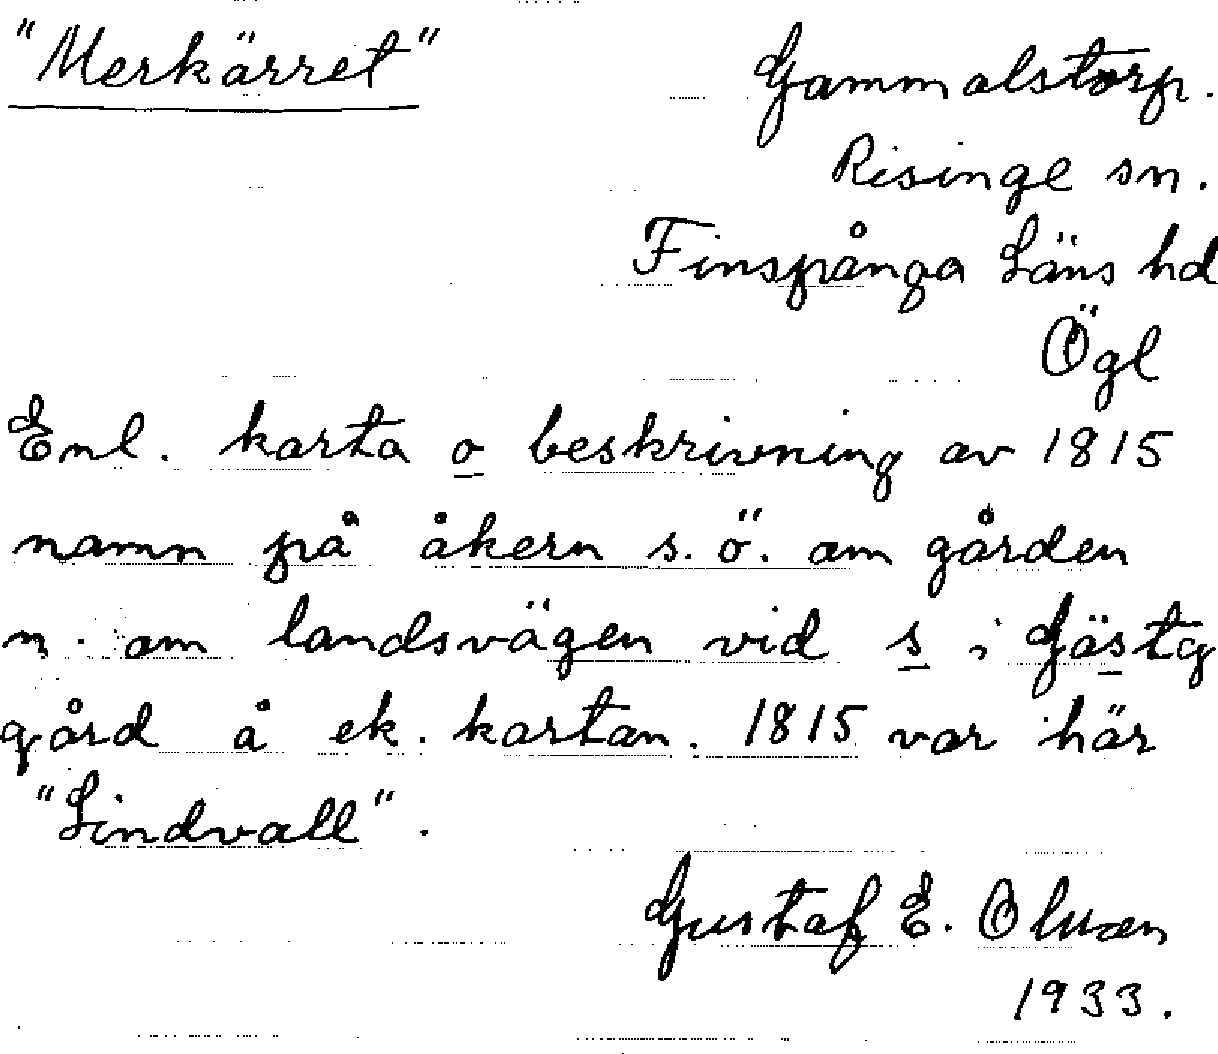 "Merkärret"
Gammalstorp.
Risinge sn.
Finspånga Läns hd
Ögl
Enl. karta o beskrivning av 1815
namn på åkern s.ö. om gården
n. om landsvägen vid s i Gästg
gård å ek. kartan. 1815 var här
"Lindvall".
Gustaf E. Olman
1933.